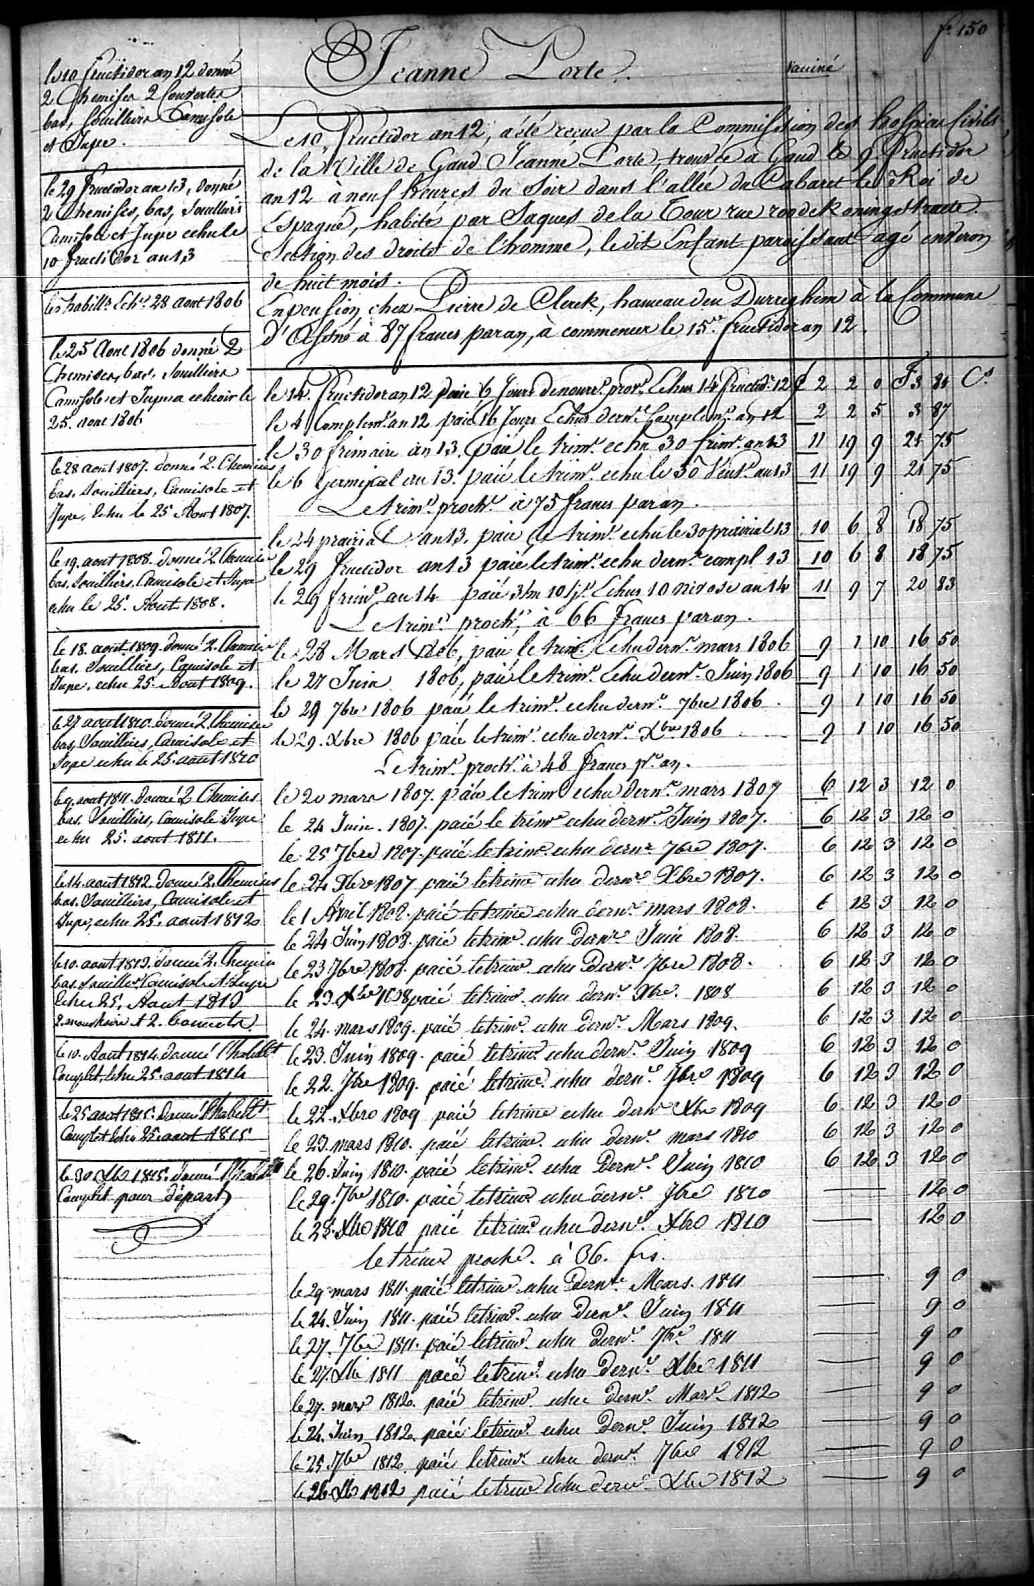 fo 150
Jeanne Porte.
Vacciné
le 10 fructidor an 12 donné
2 Chemises 2 Couvertes
bas, Souilliers Camisole
et Jupe.
le 29 fructidor an 13, donné
2 Chemises, bas, Souilliers
Camisole et Jupe echu le
10 fructidor an 13
les habillts Echs 28 aout 1806
le 25 Aout 1806 donné 2
Chemises, bas, Souilliers
Camisole et Jupe a echeoir le
25 aout 1806
le 28 août 1807. donné 2. Chemises
bas. Souilliers, Camisole et
Jupe, Echu le 25 Aout 1807.
le 19. aout 1808. donné 2 Chemises
bas. Souilliers, Camisole et Jupe
echu le 25. Aout 1808.
le 18. août 1809. donné 2. Chemises
bas. Souilliers, Camisole et
Jupe, echu 25. Aout 1809.
le 27 aout 1810. donné 2. Chemises
bas, Souilliers, Camisole et
Jupe echu le 25. aout 1810
le 9. aout 1811. Donné 2 Chemises
bas. Souilliers, Camisole Jupe
echu 25. aout 1811.
le 14. aout 1812. Donné 2. Chemises
bas. Souilliers, Camisole et
Jupe, echu 25. aout 1812
le 10. août 1813. donné 2. Chemises
bas. Souilliers Camisole et Jupe
Echu 25. Aout 1813
2. mouchoirs et 2. bonnets
le 10. Aout 1814. donné l'habillt
Complet, Echu 25. aout 1814
le 25 aout 1815. donné l'habillt
Complet Echu 25 aout 1815
le 30 Xbre 1815. donné l'habillt
Complet pour départ
Le 10, fructidor an 12, a été reçue par la Commission des hospices Civils
de la Ville de Gand Jeanne Porte, trouvée à Gand le 9 fructidor
an 12 à neuf heures du Soir dans l'allée du Cabaret le Roi de
Espagne, habité par Jaques de la Tour rue roode koningstraete.
Section des droits de l'homme, ledit Enfant paroissant agé environ
de huit mois.
En pension chez Pierre de Clerck, hameau den Durreghem à la Commune
D'Assené à 87 francs par an, à commencer le 15e fructidor an 12.
le 14. fructidor an 12 paié 6 Jours de nourre. provre. Echus 14 fructidr 12 £ 2 2 0 F 3 80 Cs
le 4 Complemre. an 12 paié 16 Jours Echus dernr. Complemre. an 12 2 2 5 3 87
le 30 frimaire an 13. paié le trime. echu 30 frimre. an 13 11 19 9 21 75
le 6 Germinal an 13. paié le trime. echu le 30 Ventse. an 13 11 19 9 21 75
Le trime. prochn. à 75 francs par an.
le 24 prairial an 13. paié le trime. echu le 30 prairial 13 10 6 8 18 75
le 29 fructidor an 13 paié le trime. echu dernr. compl. 13 10 6 8 18 75
le 29 frimre. an 14 paié 3 M 10 Jrs. Echus 10 nivose an 14 11 9 7 20 83
Le trime. prochn. à 66 francs par an.
le 28 Mars 1806, paié le trime. Echu dernr. mars 1806 9 1 10 16 50
le 27 Juin 1806, paié le trime. Echu dernr. Juin 1806 9 1 10 16 50
le 29 7bre 1806 paié le trime. echu dernr. 7bre 1806. 9 1 10 16 50
le 29. Xbre 1806 paié le trime. echu dernr. Xbre 1806 9 1 10 16 50
Le trime. prochn. à 48 francs pr. an.
le 20 mars 1807. paié le trime. echu dernr. mars 1807 6 12 3 12 0
le 24 Juin. 1807. paié le trime. echu dernr. Juin 1807. 6 12 3 12 0
le 25 7bre 1807. paié le trime. echu dernr. 7bre 1807. 6 12 3 12 0
le 24 Xbre 1807 paié le trime. echu dernr. Xbre 1807. 6 12 3 12 0
le 1 Avril 1808. paié le trime. echu dernr. mars 1808. 6 12 3 12 0
le 24 Juin 1808. paié le trime. echu dernr. Juin 1808. 6 12 3 12 0
le 23 7bre 1808. paié le trime. echu dernr. 7bre 1808. 6 12 3 12 0
le 23 Xbre 1808 paié le trime. echu dernr. Xbre. 1808 6 12 3 12 0
le 24. mars 1809. paié le trime. echu dernr. Mars 1809. 6 12 3 12 0
le 23. Juin 1809. paié le trime. echu dernr. Juin 1809 6 12 3 12 0
le 22. 7bre 1809. paié le trime. echu dernr. 7bre 1809 6 12 3 12 0
le 22. Xbre 1809 paié le trime. echu dernr. Xbre 1809 6 12 3 12 0
le 23. mars 1810. paié le trime. echu dernr. mars 1810 6 12 3 12 0
le 26. Juin 1810. paié le trime. echu dernr. Juin 1810 6 12 3 12 0
le 29. 7bre 1810. paié le trime. echu dernr. 7bre 1810 12 0
le 25. Xbre 1810 paié le trime. echu dernr. Xbre 1810 12 0
le trime. proche. à 36. frs.
le 29 mars 1811. paié le trime. echu dernr. Mars. 1811 9 0
le 24. Juin 1811. paié le trime. echu dernr. Juin 1811 9 0
le 27. 7bre 1811. paié le trime. echu dernr. 7bre 1811 9 0
le 27. Xbre 1811 paié le trime. echu dernr. Xbre 1811 9 0
le 27. mars 1812. paié le trime. echu dernr. Mars 1812 9 0
le 24. Juin 1812. paié le trime. echu dernr. Juin 1812 9 0
le 25 7bre 1812 paié le trime. echu dernr. 7bre 1812 9 0
le 26 Xbre 1812 paié le trime Echu dernr. Xbre 1812 9 0